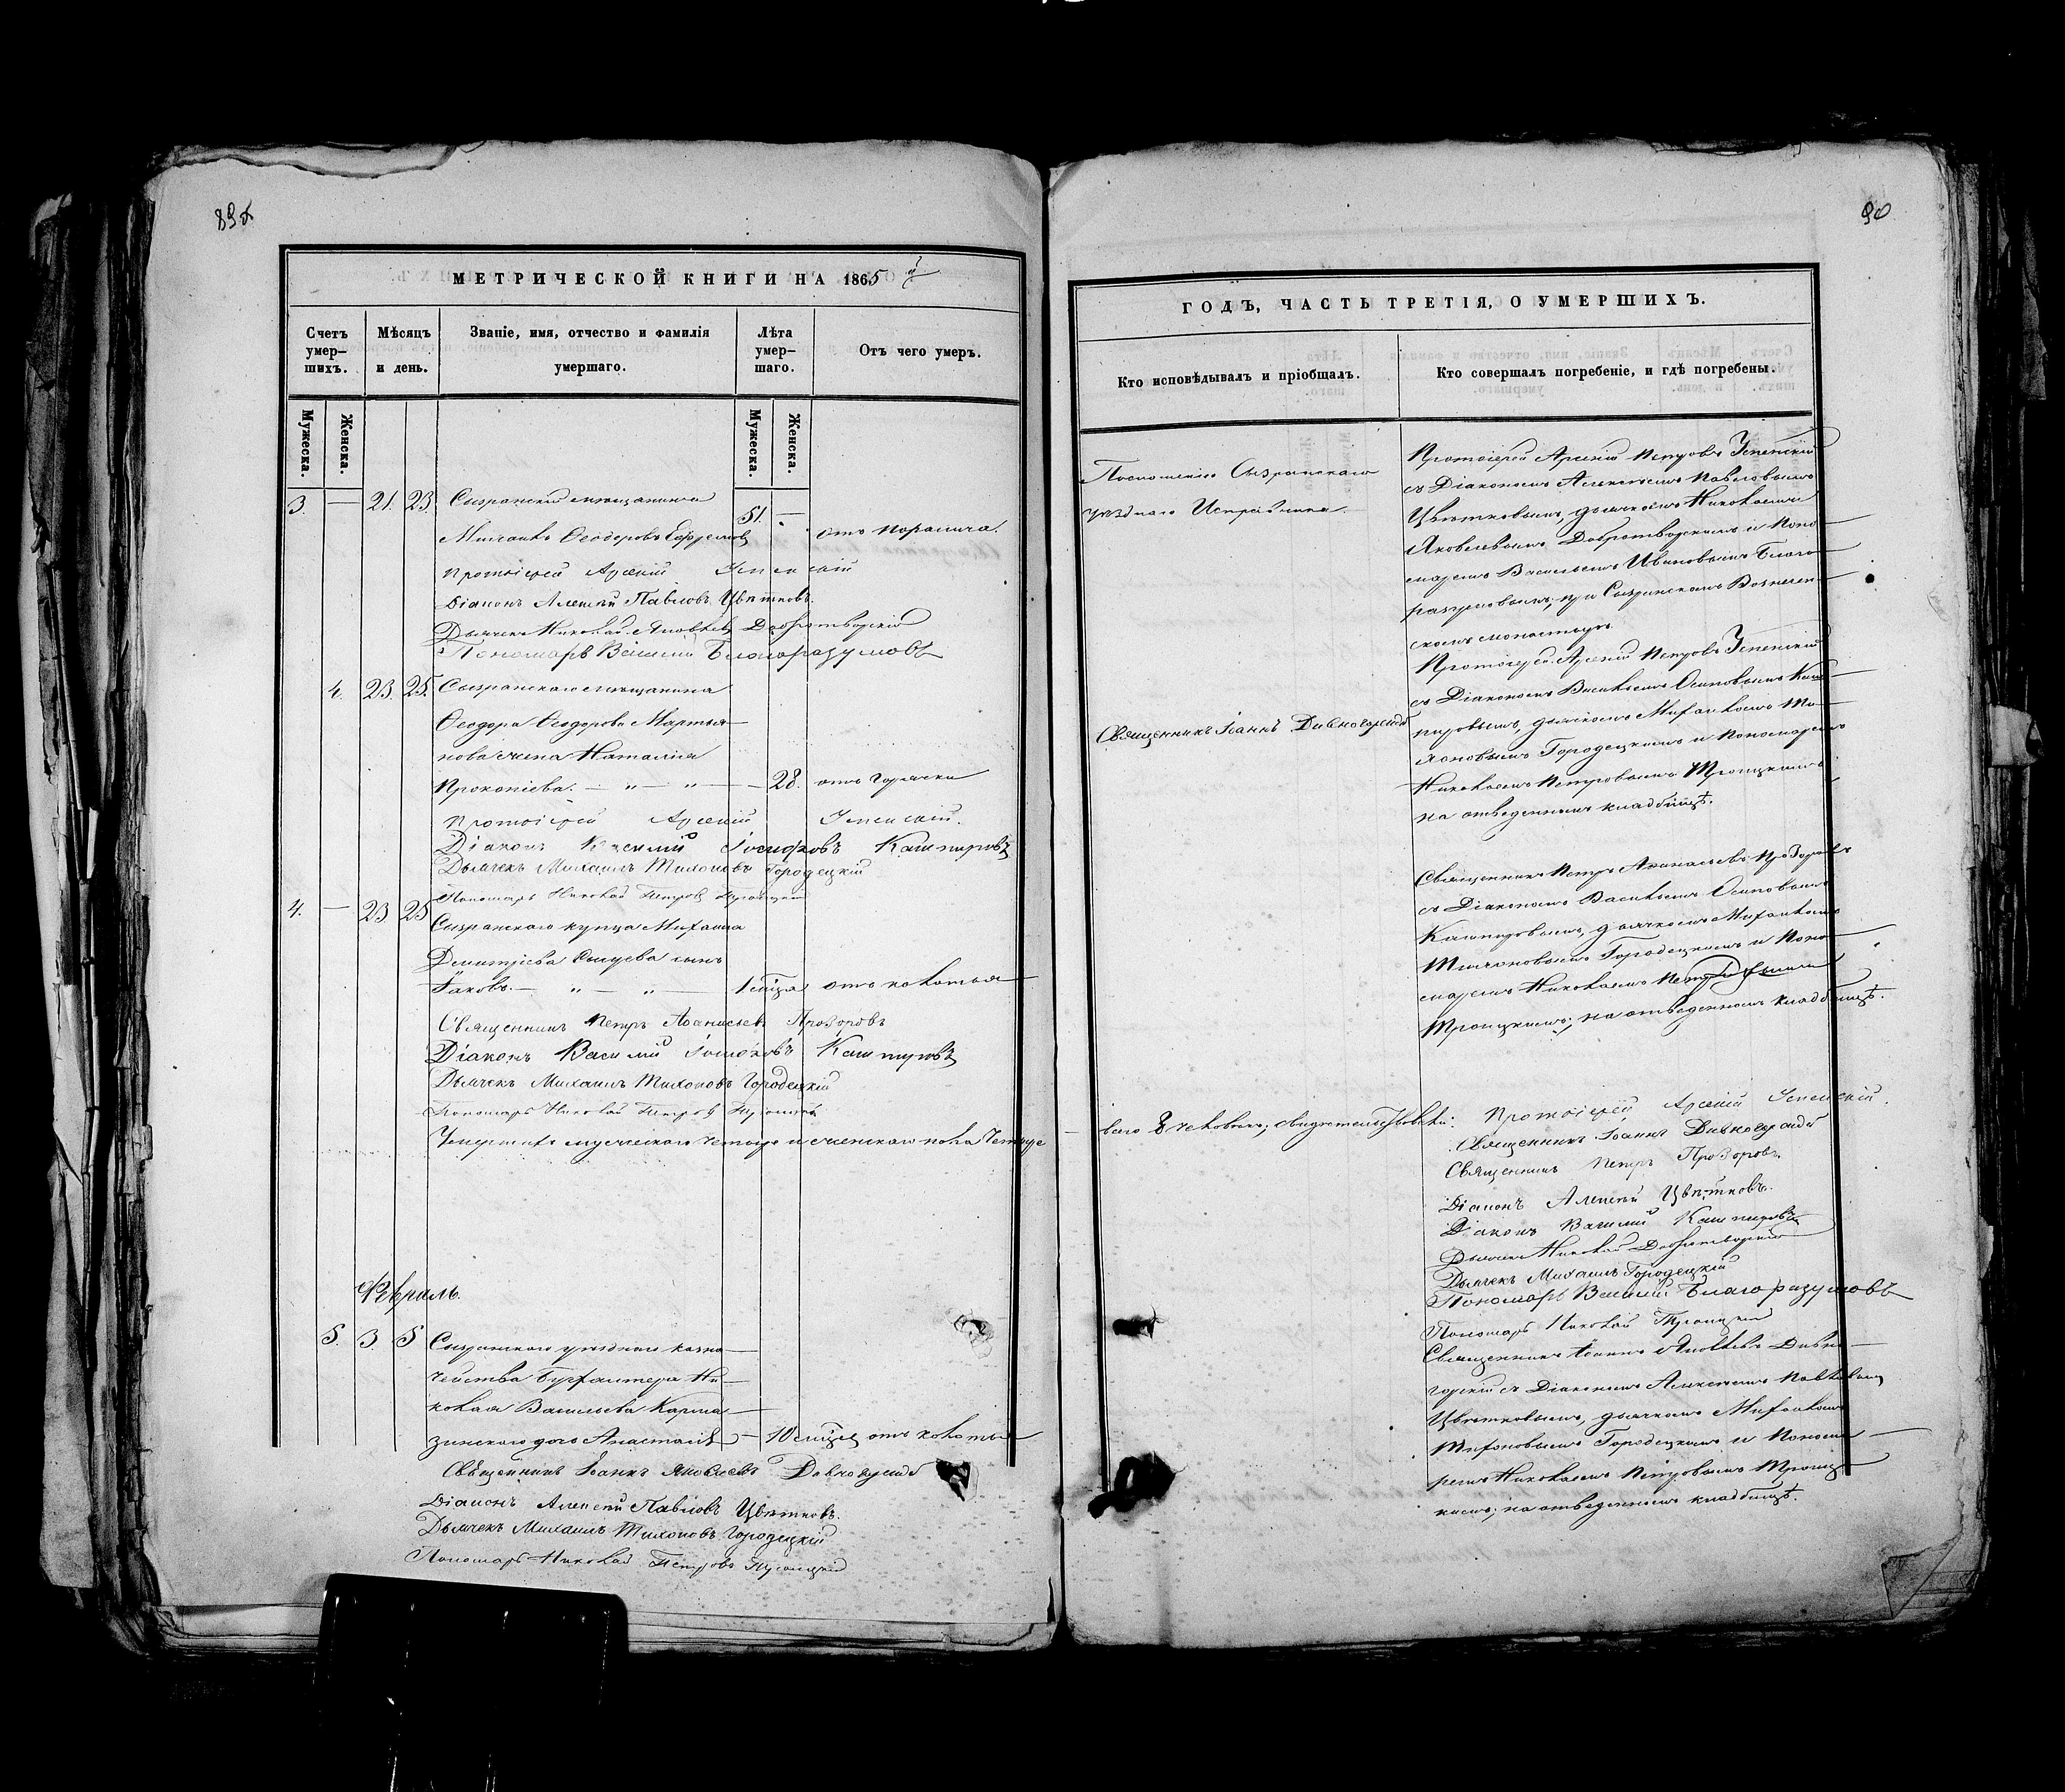 89об
МЕТРИЧЕСКОЙ КНИГИ НА 1865й
Счетъ умер-шихъ.
Мѣсяцъ и день.
Званіе, имя, отчество и фамилія умершаго.
Лѣта умер-шаго.
Отъ чего умеръ.
Мужеска.
Женска.
Мужеска.
Женска.
3. — 21. 23. Сызранскій мѣщанинъ
51. —
Михаилъ Ѳеодоровъ Ефремовъ отъ паралича.
Протоіерей Арсеній Успенскій
Діаконъ Алексѣй Павловъ Цвѣтковъ.
Дьячекъ Николай Яковлевъ Добротворскій
Пономарь Василій Благоразумовъ
4. 23. 25. Сызранскаго мѣщанина
Ѳеодора Ѳеодорова Мартья-
нова жена Наталія
Прокопіева. — " — " — 28. отъ горячки
Протоіерей Арсеній Успенскій.
Діаконъ Василій Іосифовъ Кашпировъ
Дьячекъ Михаилъ Тихоновъ Городецкій
Пономарь Николай Петровъ Троицкій
4. — 23 25 Сызранскаго купца Михаила
Димитріева сынъ
Іаковъ. — " — " — 1 мѣсяца отъ колотья
Священникъ Петръ Аѳанасьевъ Прозоровъ
Діаконъ Василій Іосифовъ Кашпировъ
Дьячекъ Михаилъ Тихоновъ Городецкій
Пономарь Николай Петровъ Троицкій
Умершихъ мужескаго четыре и женскаго пола четыре
Февраль.
5. 3. 5 Сызранскаго уѣзднаго казна-
чейства Бухгалтера Ни-
колая Васильева Карма-
зинскаго дочь Анастасія — 10 мѣсяц. отъ колотья
Священникъ Іоаннъ Яковлевъ Дивногорскій
Діаконъ Алексѣй Павловъ Цвѣтковъ.
Дьячекъ Михаилъ Тихоновъ Городецкій
Пономарь Николай Петровъ Троицкій
90
ГОДЪ, ЧАСТЬ ТРЕТІЯ, О УМЕРШИХЪ.
Кто исповѣдывалъ и пріобщалъ.
Кто совершалъ погребеніе, и гдѣ погребены.
По отношенію Сызранскаго
уѣзднаго Исправника.
Протоіерей Арсеній Петровъ Успенскій
съ Діакономъ Алексѣемъ Павловымъ
Цвѣтковымъ, дьячкомъ Николаемъ
Яковлевымъ Добротворскимъ и Поно-
маремъ Васильемъ Ивановымъ Благо-
разумовымъ; при Сызранскомъ Вознесен-
скомъ монастырѣ.
Священникъ Іоаннъ Дивногорскій
Протоіерей Арсеній Петровъ Успенскій
съ Діакономъ Васильемъ Осиповымъ Каш-
пировымъ, дьячкомъ Михаиломъ Ти-
хоновымъ Городецкимъ и Пономаремъ
Николаемъ Петровымъ Троицкимъ.
на отведенномъ кладбищѣ.
Священникъ Петръ Аѳанасьевъ Прозоровъ
съ Діакономъ Васильемъ Осиповымъ
Кашпировымъ, дьячкомъ Михаиломъ
Тихоновымъ Городецкимъ и Поно-
маремъ Николаемъ Петровымъ
Троицкимъ; на отведенномъ кладбищѣ.
всего 8 человѣкъ; свидѣтельствовали:
Протоіерей Арсеній Успенскій.
Священникъ Іоаннъ Дивногорскій
Священникъ Петръ Прозоровъ.
Діаконъ Алексѣй Цвѣтковъ.
Діаконъ Василій Кашпировъ
Дьячекъ Николай Добротворскій
Дьячекъ Михаилъ Городецкій
Пономарь Василій Благоразумовъ
Пономарь Николай Троицкій
Священникъ Іоаннъ Яковлевъ Дивно-
горскій съ Діакономъ Алексѣемъ Павловымъ
Цвѣтковымъ, дьячкомъ Михаиломъ
Тихоновымъ Городецкимъ и Понома-
ремъ Николаемъ Петровымъ Троиц-
кимъ; на отведенномъ кладбищѣ.